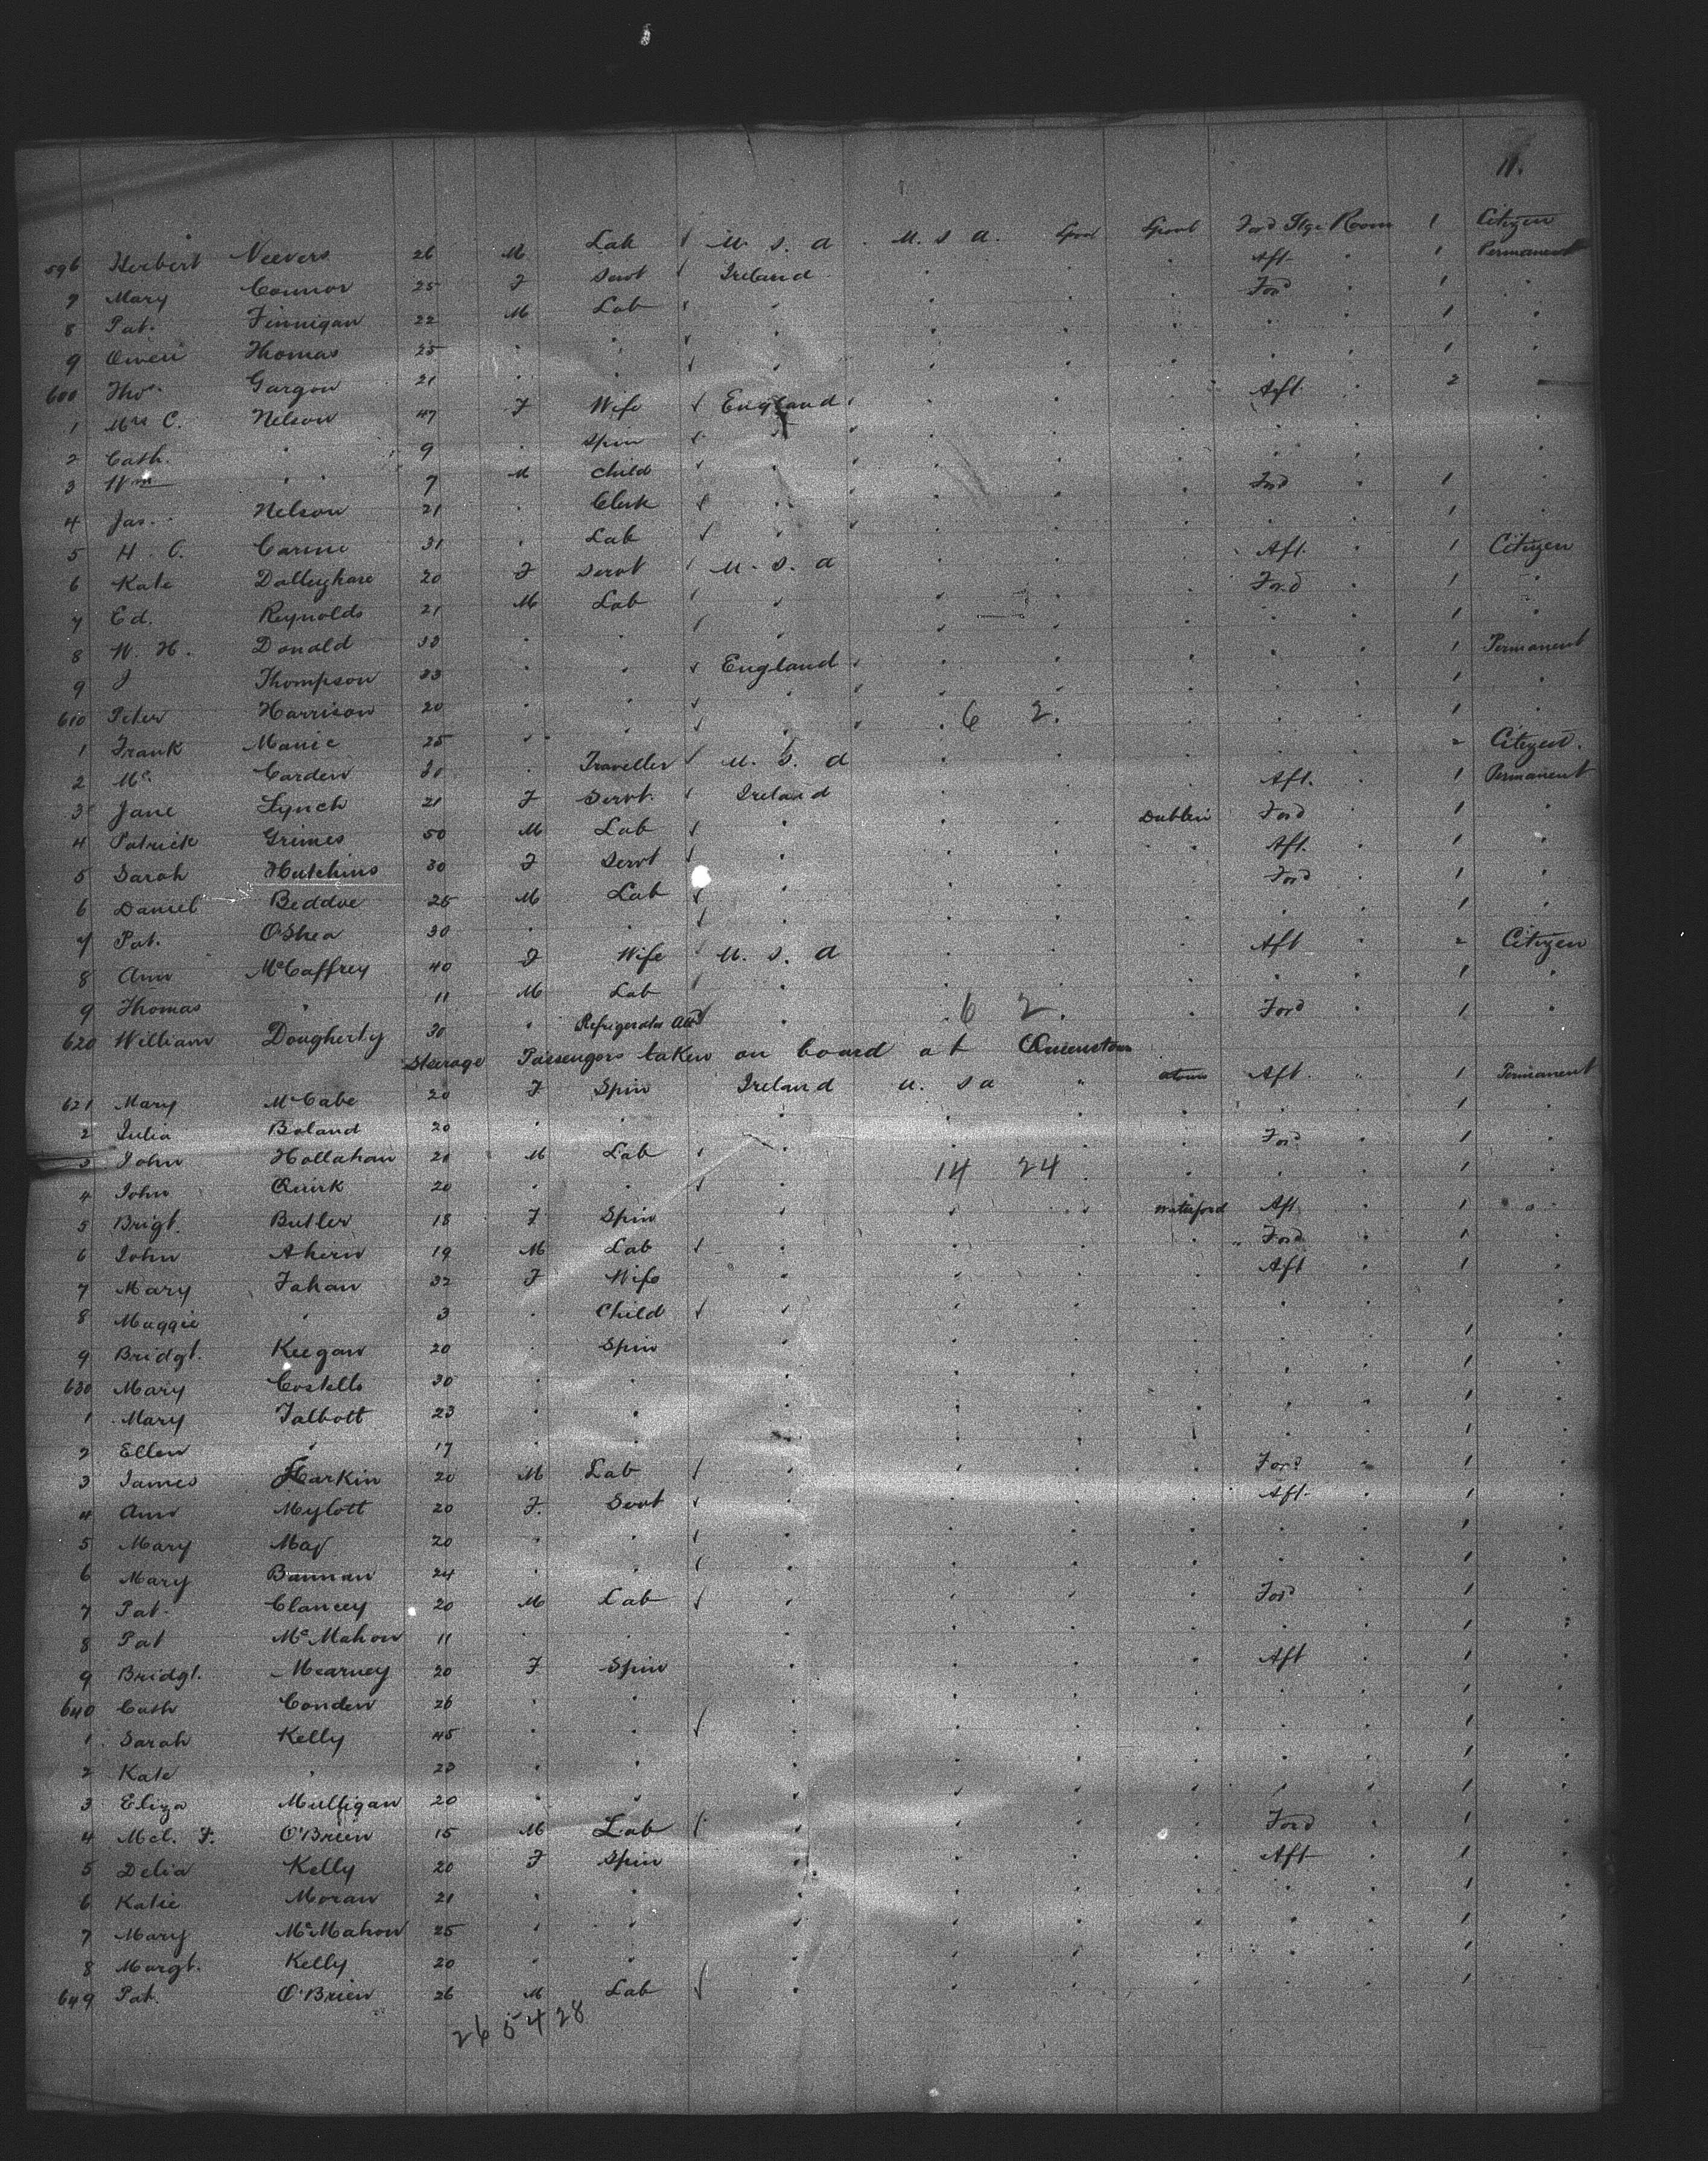 11.
596 Herbert Neevers 26 M Lab U. S. A. U. S. A. Lpool Lpool Ford Stge Room 1 Citizen
7 Mary Connor 25 F Servt Ireland " " " Aft " 1 Permanent
8 Pat. Finnigan 22 M Lab " " " " Ford " 1 "
9 Owen Thomas 25 " " " " " " " " 1 "
600 Thos. Gargon 21 " " " " " " " " 1 "
1 Mrs C. Nelson 47 F Wife England " " " Aft. " 2 "
2 Cath. " 9 " Spin " " " " " " "
3 Wm " 7 M Child " " " " " " "
4 Jas. Nelson 21 " Clerk " " " " Ford " 1 "
5 H. C. Carine 31 " Lab " " " " " " 1 "
6 Kate 20 F Servt U. S. A " " " Aft. " 1 Citizen
7 Ed. Reynolds 21 M Lab " " " " Ford " 1 "
8 W. H. Donald 38 " " " " " " " " 1 "
9 J Thompson 33 " " England " " " " " 1 Permanent
610 Peter Harrison 20 " " " " " " " " 1 "
6 2.
1 Frank Manie 25 " " " " " " " " 1 "
2 Mc. Carden 30 " Traveller U. S. A " " " " " 2 Citizen.
3 Jane Lynch 21 F Servt. Ireland " " " Aft. " 1 Permanent
4 Patrick Grimes 50 M Lab " " " Dublin Ford " 1 "
5 Sarah Hutchins 30 F Servt " " " " Aft. " 1 "
6 Daniel Beddoe 25 M Lab " " " " Ford " 1 "
7 Pat. O'Shea 30 " " " " " " " " 1 "
8 Ann McCaffrey 40 F Wife U. S. A " " " Aft " 2 Citizen
9 Thomas " 11 M Lab " " " " " " 1 "
6 2
620 William Dougherty 30 " Refrigerator Att " " " " Ford " 1
Steerage Passengers taken on board at Queenstown
621 Mary McCabe 20 F Spin Ireland U. S A " Aft. " 1 Permanent
2 Julia Boland 20 " " " " " " " " 1 "
3 John Hollahan 21 M Lab " " " " Ford " 1 "
14 24
4 John Quirk 20 " " " " " " " " 1 "
5 Brigt. Butler 18 F Spin " " " Waterford Aft " 1 "
6 John Ahern 19 M Lab " " " " Ford " 1 "
7 Mary Fahan 32 F Wife " " " " Aft " 1 "
8 Maggie " 3 " Child " " " " " " "
9 Bridgt. Keegan 20 " Spin " " " " " " 1 "
630 Mary Costello 30 " " " " " " " " 1 "
1 Mary Talbott 23 " " " " " " " " 1 "
2 Ellen " 17 " " " " " " " " 1 "
3 James Harkin 20 M Lab " " " " Ford " 1 "
4 Ann Mylott 20 F. Servt " " " " Aft. " 1 "
5 Mary May 20 " " " " " " " " 1 "
6 Mary Bannan 24 " " " " " " " " 1 "
7 Pat. Clancey 20 M Lab " " " " Ford " 1 "
8 Pat McMahon 11 " " " " " " " " 1 "
9 Bridgt. Mearney 20 F Spin " " " " Aft " 1 "
640 Cath Conden 26 " " " " " " " " 1 "
1 Sarah Kelly 45 " " " " " " " " 1 "
2 Kate " 23 " " " " " " " " 1 "
3 Eliza Mulligan 20 " " " " " " " " 1 "
4 Mcl. F. O'Brien 15 M Lab " " " " Ford " 1 "
5 Delia Kelly 20 F Spin " " " " Aft " 1 "
6 Katie Moran 21 " " " " " " " " 1 "
7 Mary McMahon 25 " " " " " " " " 1 "
8 Margt. Kelly 20 " " " " " " " " 1 "
649 Pat. O'Brien 26 M Lab " " " " " " 1 "
26 54 28